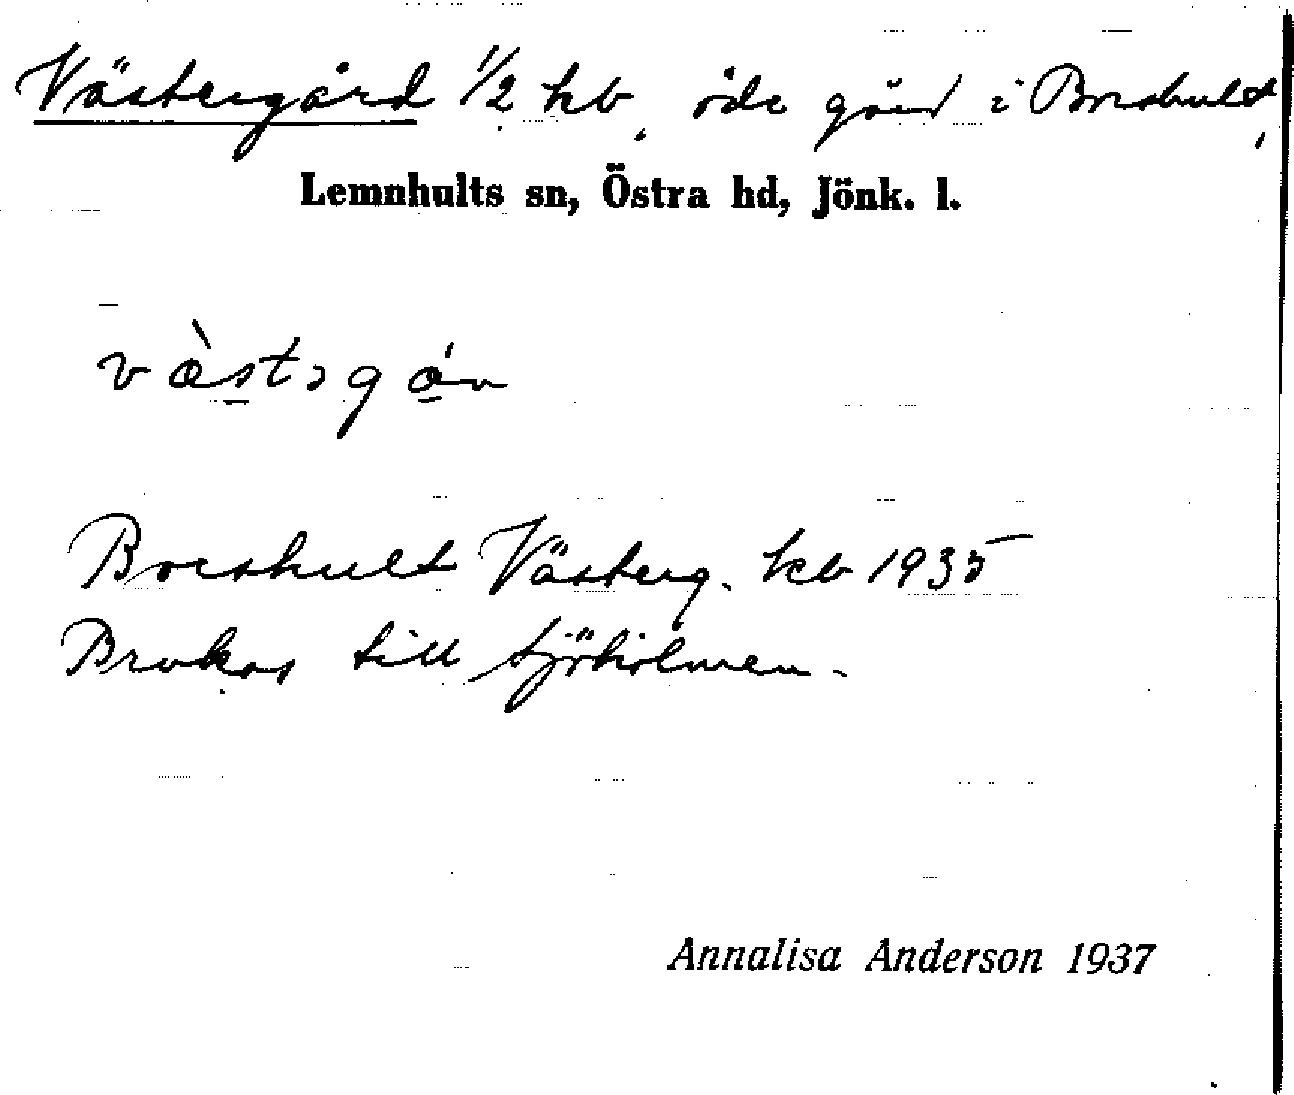 Västergård 1/2 hb, öde gård i Boeshult,
Lemnhults sn, Östra hd, Jönk. l.
væ̀stəgǻn
Boeshult Västerg. kb 1935
Brukas till Sjöholmen.
Annalisa Anderson 1937